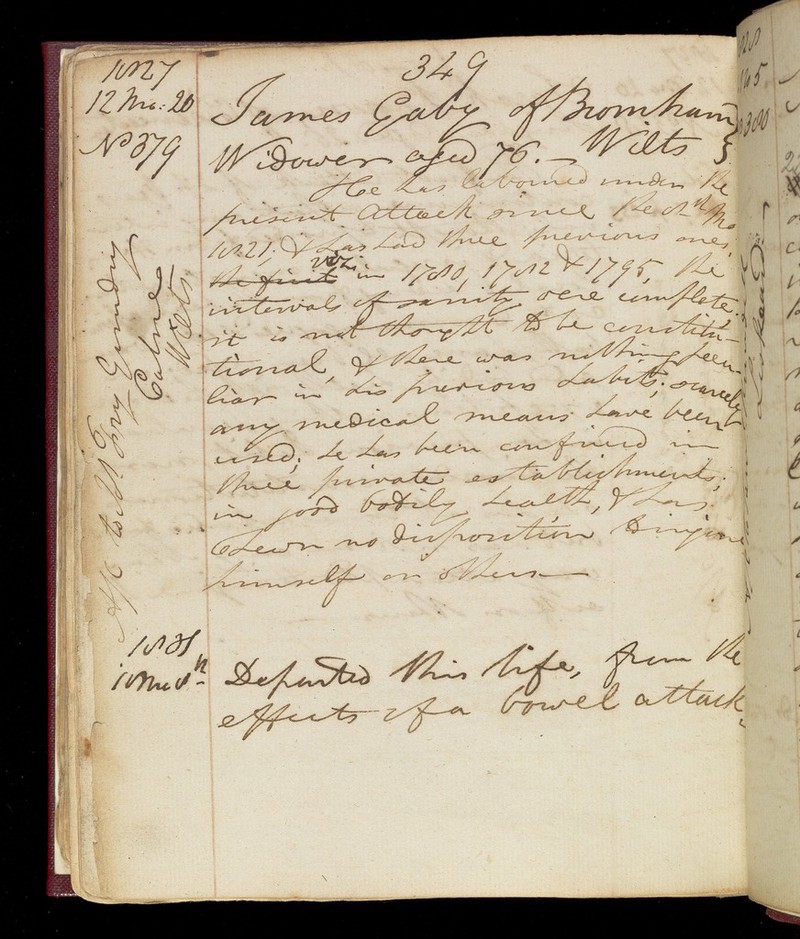 349
1827
12 Mo: 20
No 379
James Gaby of Bromham
Widower aged 76. — Wilts
He has laboured under the
present attack since the 8th Mo
1821. & has had three previous ones,
the first viz: in 1780, 1782 & 1795, the
intervals of sanity were complete.
it is not thought to be constitu-
tional, & there was nothing pecu-
liar in his previous habits; scarcely
any medical means have been
used; he has been confined in
three private establishments;
in good bodily health, & has
shewn no disposition to injure
himself or others —
A/C to
Gundry
Calne
Wilts
10 Mo 8th
Departed this life, from the
effects of a bowel attack